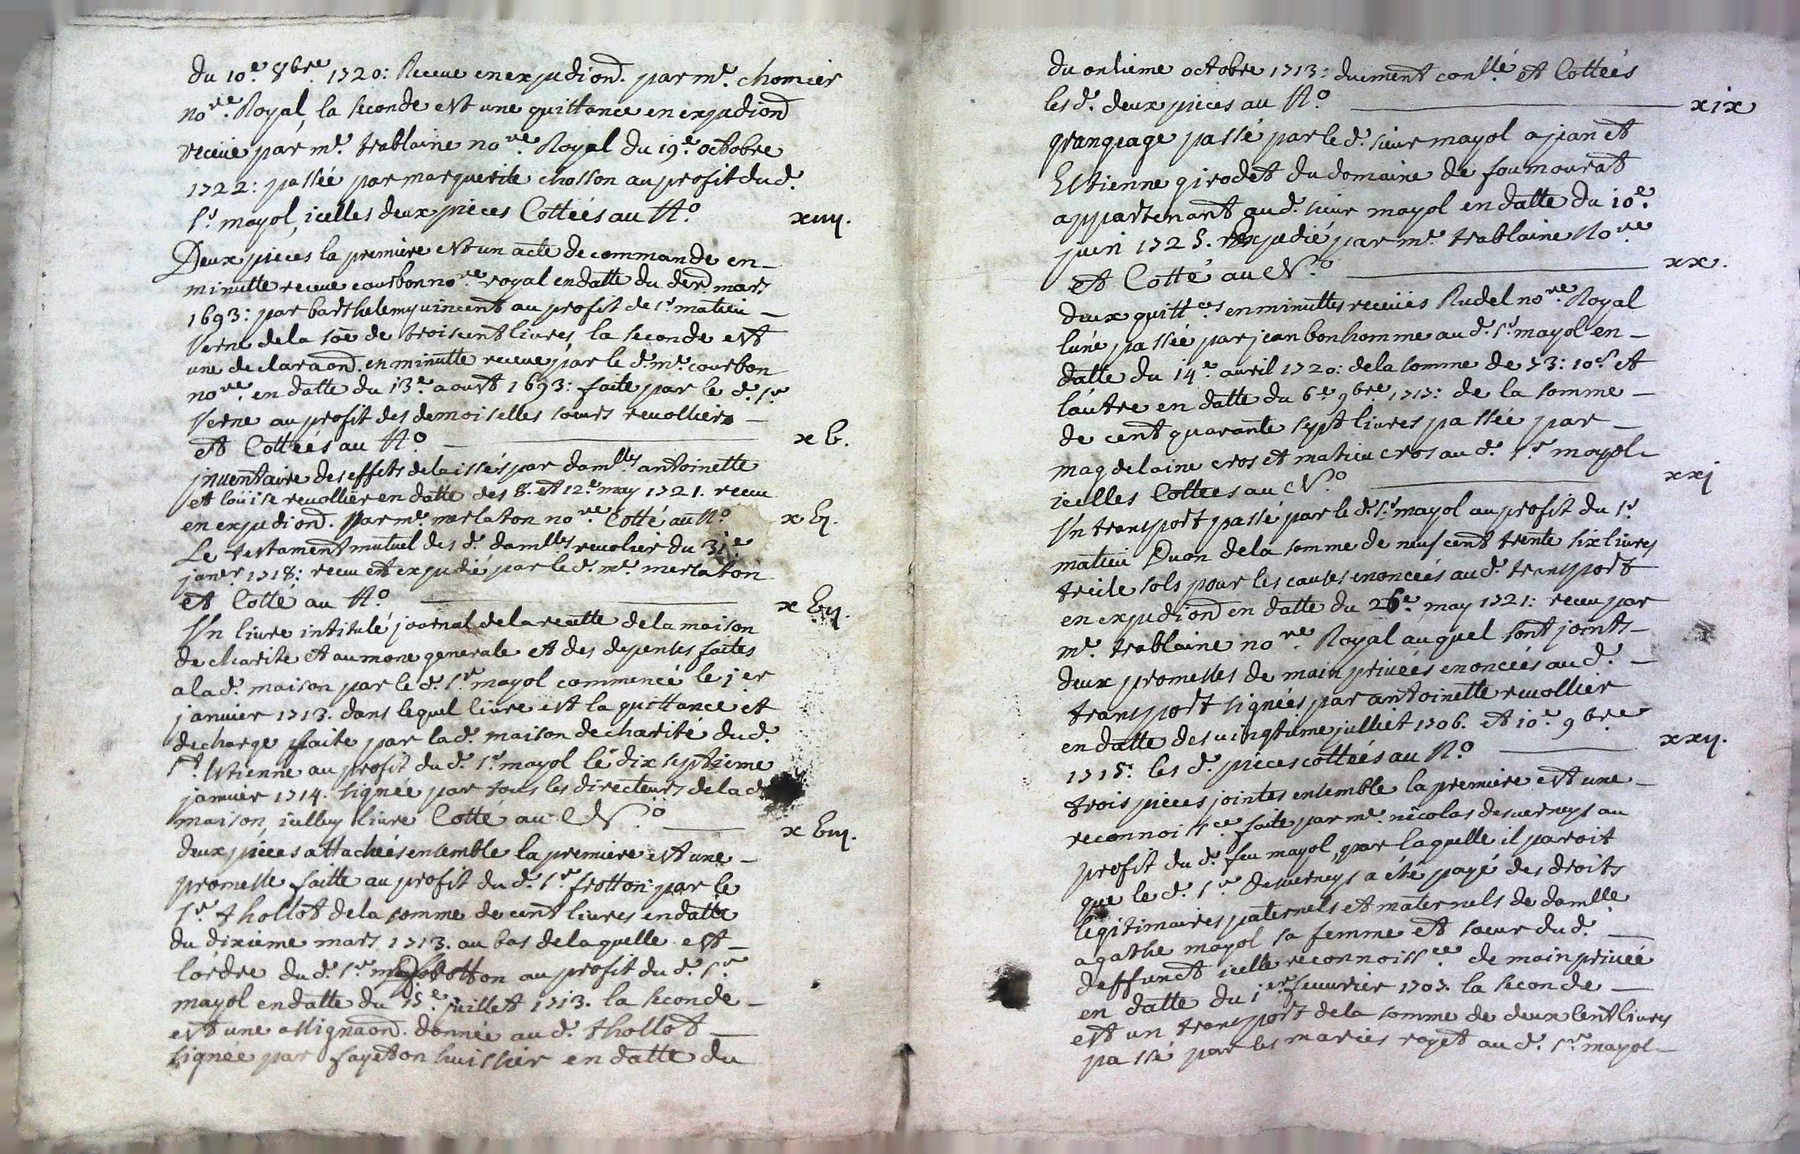 du 10.e 8bre. 1720: Receue en expediond. par me. chomier
nore. Royal, la seconde est une quittance en expediond
receüe par me. trablaine nore. Royal du 19.e octobre
1722: passée par marguerite chosson au profit dud.
sr. mayol, icelles deux pieces Cottéés au No. xiiij.
Deux pieces la premiere est un acte de commande en
minutte receue courbon nore royal en datte du derd. mars
1693: par barthelemy vincent au profit de sr. matieu
Verne de la soe de trois cent livres, la seconde est
une declaraond. en minutte receue par le d. me. courbon
nore. en datte du 13.e aoust 1693: faite par le d. sr
Verne au profit des demoiselles soeurs revolliers
et Cottéés au No. x b.
jnventaire des effets delaissés par damlles antoinette
et loüise revollier en datte des 8. et 12.e may 1721. receu
en expediond. par me. merlaton nore. Cotté au No. x bj.
Le testament mutuel des d. damlles revolier du 31.e
janer 1718: receu et expedié par le d. me. merlaton
et Cotté au No. x bij.
Un livre intitulé journal de la recette de la maison
de charité et aumone generale et des depenses faites
a la d. maison par le d. sr mayol commencé le jer
janvier 1713. dans lequel livre est la quittance et
decharge faite par la d. maison de charité dud.
st. Estienne au profit du d. sr. mayol le dix septieme
janvier 1714. signée par tous les directeurs de la d
maison, icelluy livre Cotté au No. x biij.
deux piéces attachéés ensemble la premiere est une
promesse faitte au profit du d. sr. frotton par le
sr. thollot de la somme de cent livres en datte
du dixieme mars 1713. au bas de laquelle est
l'ordre du d. sr. frotton au profit du d. sr
mayol en datte du 15.e juillet 1713. la seconde
est une assignaond. donnée au d. thollot
signée par fayet on huissier en datte du
du onzieme octobre 1713: duement conllé et Cottéés
les d. deux pieces au No. xix
grangeage passé par le d. sieur mayol a jean et
Estienne girodet du domaine de foumourat
appartenant au d. sieur mayol en datte du 10.e
juin 1725. expedié par me. trablaine Nore
et Cotté au No. xx.
deux quittces en minuttes receüés Rudel nore. Royal
l'une passée par jean bonhomme au d. sr. mayol en
datte du 14.e avril 1720: de la somme de 53: 10s et
l'autre en datte du 6.e 9bre. 1717: de la somme
de cent quarante sept livres passée par
magdelaine cros et matieu cros au d. sr mayol
icelles Cottees au No. xxj
Un transport passé par le d. sr mayol au profit du sr
matieu Duon de la somme de neuf cent trente six livres
treile sols pour les causes enoncéés au d. transport
en expediond en datte du 26.e may 1721: receu par
me. trablaine nore Royal auquel sont joints
deux promesses de main privéés enoncéés au d.
transport signéés par antoinette revollier
en datte des vingtieme juillet 1706. et 10.e 9bre
1715. les d. piéces cottéés au No. xxij.
trois piéces jointes ensemble la premiere est une
reconnoissce faite par me nicolas desverneys au
profit du d. feu mayol par laquelle il paroit
que le d. sr Desverneys a été payé des droits
legitimaires paternels et maternels de damlle
agathe mayol sa femme et soeur du d.
deffunct icelle reconnoissce de main privéé
en datte du jer fevurier 1707. la seconde
est un transport de la somme de deux cent livres
passé par les mariés royet au d. sr. mayol